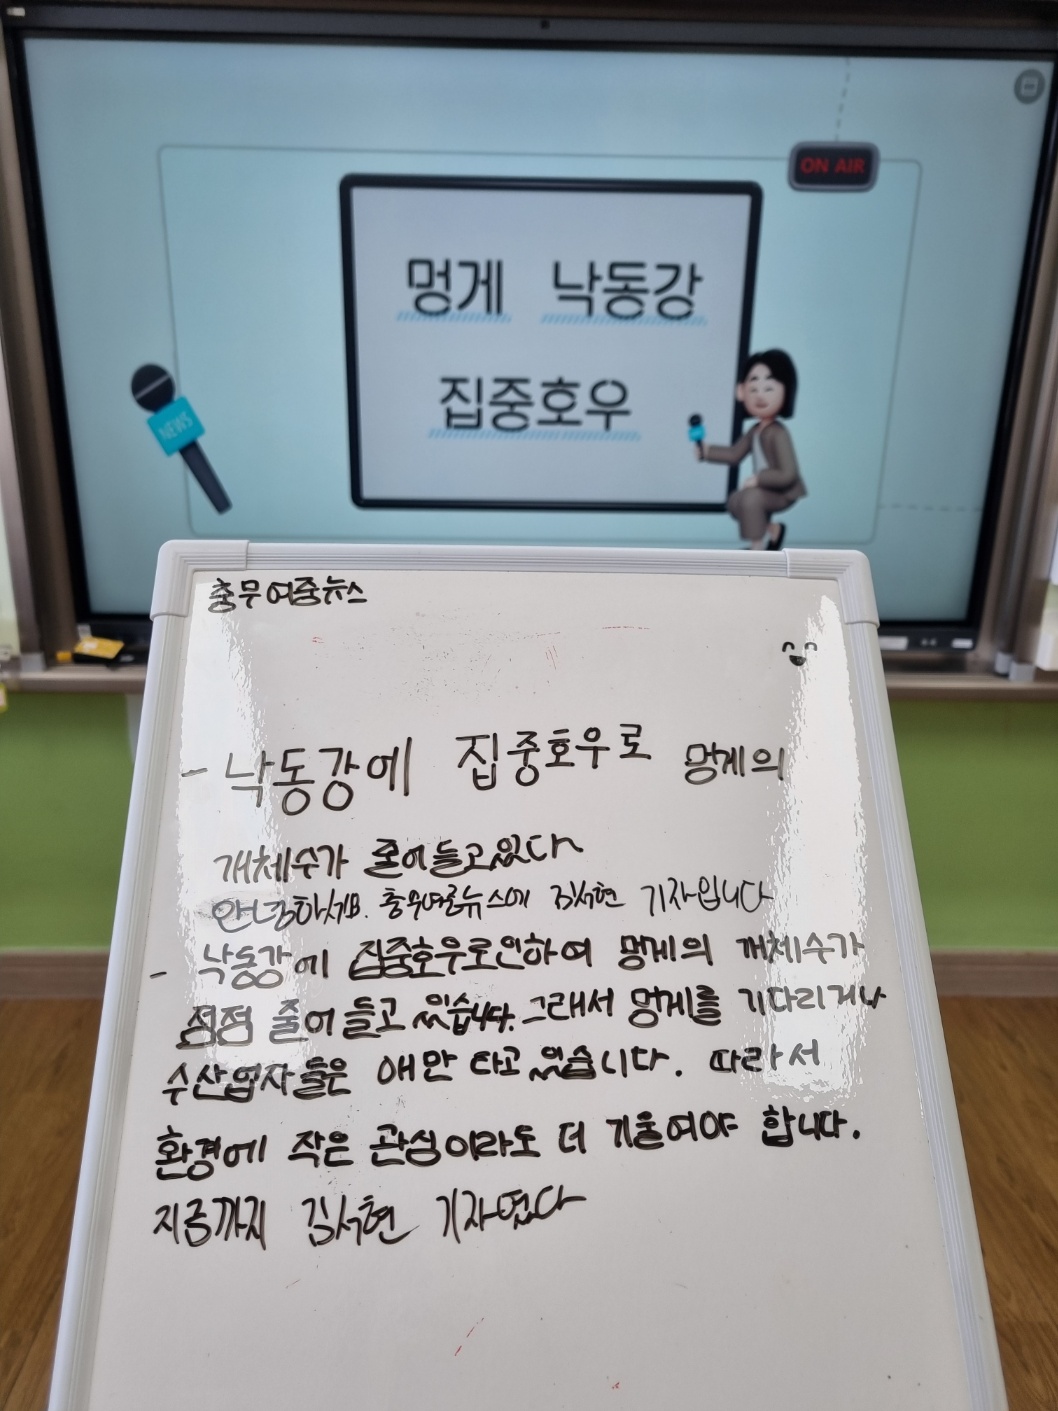 ON AIR
멍게 낙동강
집중호우
NEWS
충무여중뉴스
- 낙동강에 집중호우로 멍게의
개체수가 줄어들고있다
안녕하세요. 충무여중뉴스에 김서현 기자입니다
- 낙동강에 집중호우로인하여 멍게의 개체수가
점점 줄어들고 있습니다. 그래서 멍게를 기다리거나
수산업자들은 애만 타고 있습니다. 따라서
환경에 작은 관심이라도 더 기울여야 합니다.
지금까지 김서현 기자였다